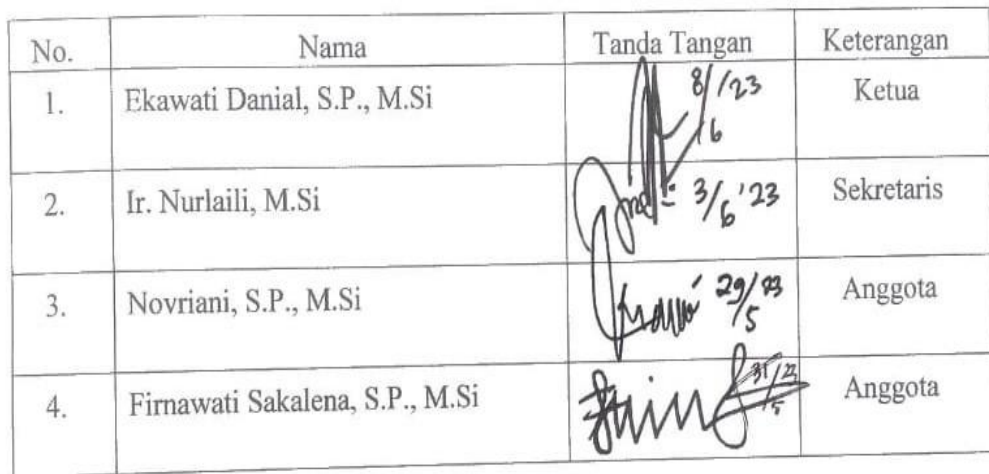 No. Nama Tanda Tangan Keterangan
1. Ekawati Danial, S.P., M.Si 8/6/23 Ketua
2. Ir. Nurlaili, M.Si 3/6 '23 Sekretaris
3. Novriani, S.P., M.Si 29/5 23 Anggota
4. Firnawati Sakalena, S.P., M.Si 31/5 23 Anggota